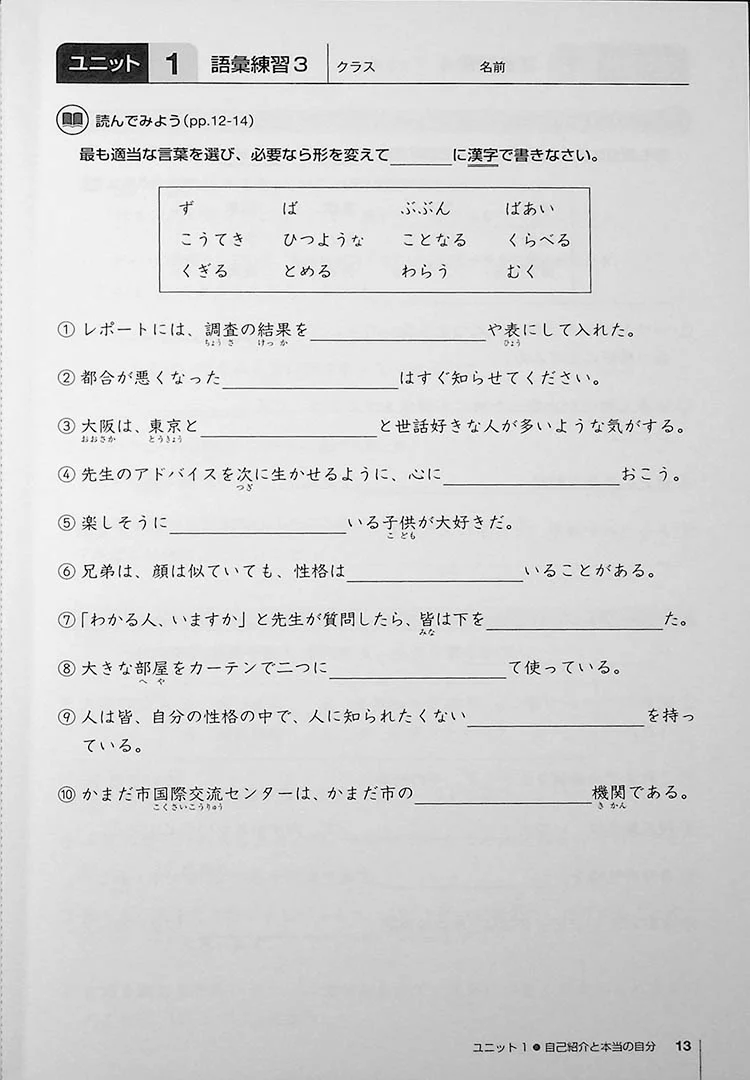 ユニット 1 語彙練習3 クラス 名前
読んでみよう(pp.12-14)
最も適当な言葉を選び、必要なら形を変えて______に漢字で書きなさい。
ず ば ぶぶん ばあい
こうてき ひつような ことなる くらべる
くぎる とめる わらう むく
① レポートには、調査の結果を______や表にして入れた。
ちょうさ けっか ひょう
② 都合が悪くなった______はすぐ知らせてください。
③ 大阪は、東京と______と世話好きな人が多いような気がする。
おおさか とうきょう
④ 先生のアドバイスを次に生かせるように、心に______おこう。
つぎ
⑤ 楽しそうに______いる子供が大好きだ。
こども
⑥ 兄弟は、顔は似ていても、性格は______いることがある。
⑦ 「わかる人、いますか」と先生が質問したら、皆は下を______た。
みな
⑧ 大きな部屋をカーテンで二つに______て使っている。
へや
⑨ 人は皆、自分の性格の中で、人に知られたくない______を持っ
ている。
⑩ かまだ市国際交流センターは、かまだ市の______機関である。
こくさいこうりゅう きかん
ユニット1 ● 自己紹介と本当の自分 13